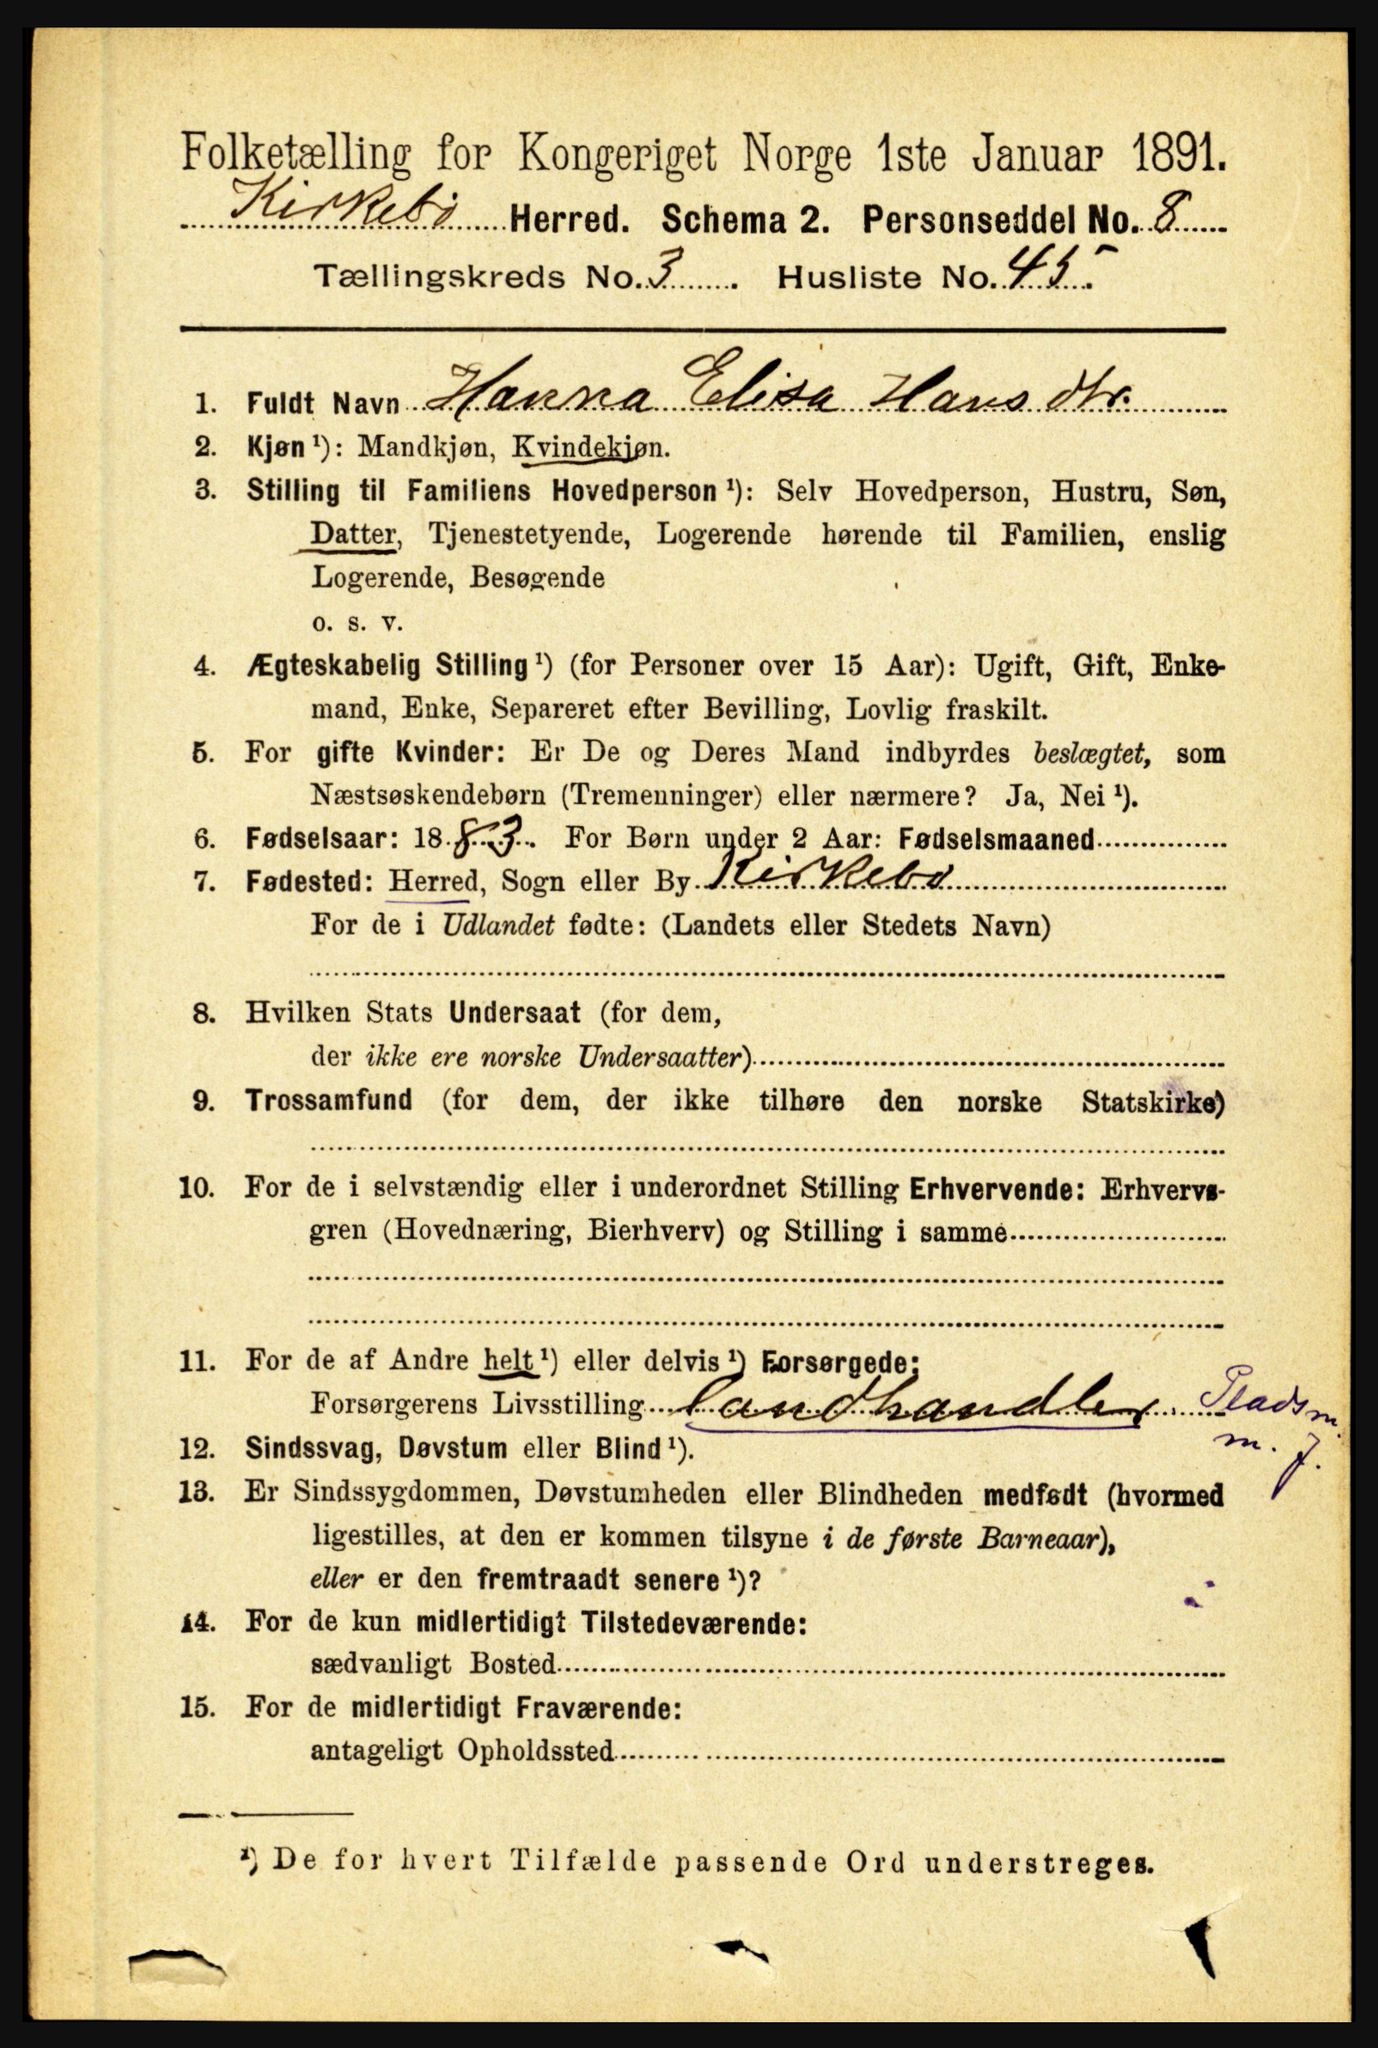 Folketælling for Kongeriget Norge 1ste Januar 1891.
Kirkebø Herred. Schema 2. Personseddel No. 8
Tællingskreds No. 3. Husliste No. 45.
1. Fuldt Navn Hanna Elisa Hansdtr.
2. Kjøn ¹): Mandkjøn, Kvindekjøn.
3. Stilling til Familiens Hovedperson ¹): Selv Hovedperson, Hustru, Søn,
Datter, Tjenestetyende, Logerende hørende til Familien, enslig
Logerende, Besøgende
o. s. v.
4. Ægteskabelig Stilling ¹) (for Personer over 15 Aar): Ugift, Gift, Enke-
mand, Enke, Separeret efter Bevilling, Lovlig fraskilt.
5. For gifte Kvinder: Er De og Deres Mand indbyrdes beslægtet, som
Næstsøskendebørn (Tremenninger) eller nærmere? Ja, Nei ¹).
6. Fødselsaar: 1883. For Børn under 2 Aar: Fødselsmaaned
7. Fødested: Herred, Sogn eller By Kirkebø
For de i Udlandet fødte: (Landets eller Stedets Navn)
8. Hvilken Stats Undersaat (for dem,
der ikke ere norske Undersaatter)
9. Trossamfund (for dem, der ikke tilhøre den norske Statskirke)
10. For de i selvstændig eller i underordnet Stilling Erhvervende: Erhvervs-
gren (Hovednæring, Bierhverv) og Stilling i samme
11. For de af Andre helt ¹) eller delvis ¹) Forsørgede:
Forsørgerens Livsstilling Landhandler Pladsm.
m. j.
12. Sindssvag, Døvstum eller Blind ¹).
13. Er Sindssygdommen, Døvstumheden eller Blindheden medfødt (hvormed
ligestilles, at den er kommen tilsyne i de første Barneaar),
eller er den fremtraadt senere ¹)?
14. For de kun midlertidigt Tilstedeværende:
sædvanligt Bosted
15. For de midlertidigt Fraværende:
antageligt Opholdssted
¹) De for hvert Tilfælde passende Ord understreges.